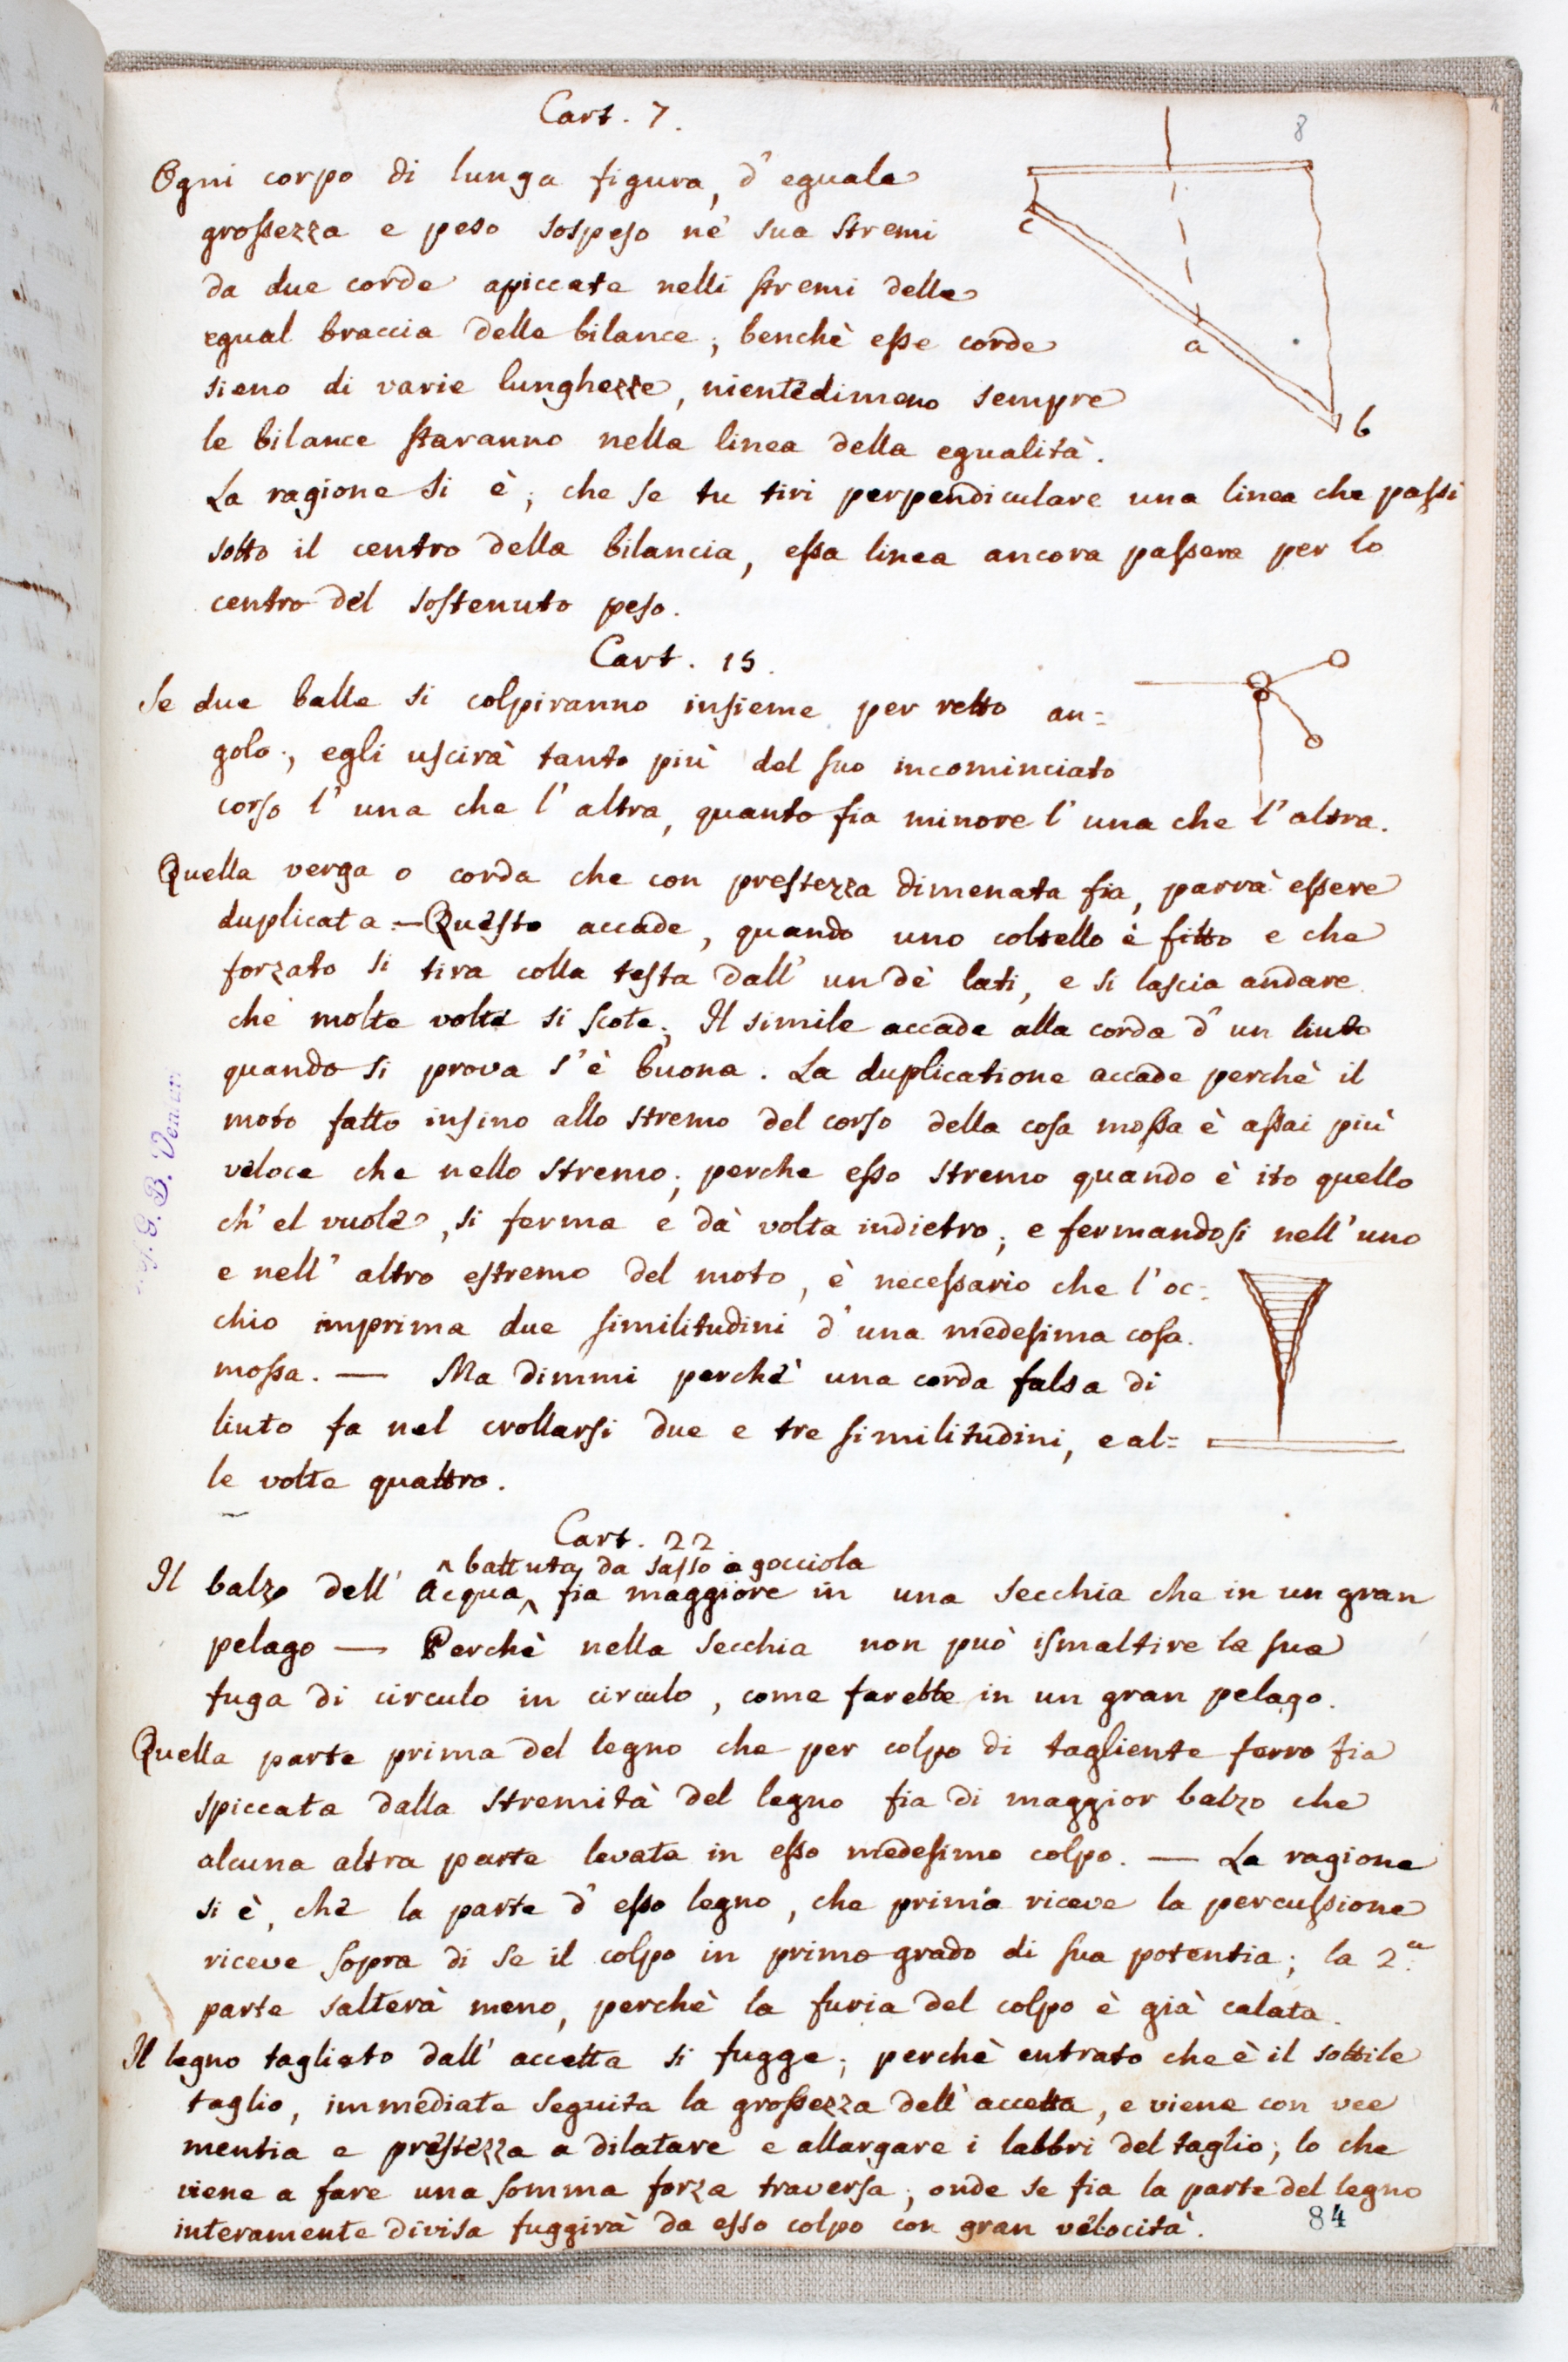 Cart. 7.
8
Ogni corpo di lunga figura, d'eguale
grossezza e peso sospeso ne' sua stremi
da due corde apiccate nelli stremi delle
egual braccia delle bilance; benchè esse corde
sieno di varie lunghezze, nientedimeno sempre
le bilance staranno nella linea della egualità.
La ragione si è, che se tu tiri perpendiculare una linea che passi
sotto il centro della bilancia, essa linea ancora passera per lo
centro del sostenuto peso.
c
a
b
Cart. 15.
Se due balle si colpiranno insieme per retto an=
golo, egli uscirà tanto più del suo incominciato
corso l'una che l'altra, quanto fia minore l'una che l'altra.
Quella verga o corda che con prestezza dimenata fia, parrà essere
duplicata — Questo accade, quando uno coltello è fitto e che
forzato si tira colla testa dall' un de' lati, e si lascia andare
che molte volte si scote. Il simile accade alla corda d'un liuto
quando si prova s'è buona. La duplicatione accade perchè il
moto fatto insino allo stremo del corso della cosa mossa è assai più
veloce che nello stremo; perche esso stremo quando è ito quello
ch'el vuole, si ferma e dà volta indietro; e fermandosi nell'uno
e nell'altro estremo del moto, è necessario che l'oc=
chio imprima due similitudini d'una medesima cosa
mossa. — Ma dimmi perchè una corda falsa di
liuto fa nel crollarsi due e tre similitudini, e al=
le volte quattro.
G. B. Venturi
Cart. 22
^ battuta da sasso o gocciola
Il balzo dell' acqua ^ fia maggiore in una secchia che in un gran
pelago — Perchè nella secchia non può ismaltire la sua
fuga di circulo in circulo, come farebbe in un gran pelago.
Quella parte prima del legno che per colpo di tagliente ferro fia
spiccata dalla stremità del legno fia di maggior balzo che
alcuna altra parte levata in esso medesimo colpo. — La ragione
si è, che la parte d'esso legno, che prima riceve la percussione
riceve sopra di se il colpo in primo grado di sua potentia; la 2.a
parte salterà meno, perchè la furia del colpo è già calata.
Il legno tagliato dall'accetta si fugge; perchè entrato che è il sottile
taglio, immediate seguita la grossezza dell'accetta, e viene con vee
mentia e prestezza a dilatare e allargare i labbri del taglio; lo che
viene a fare una somma forza traversa; onde se fia la parte del legno
interamente divisa fuggirà da esso colpo con gran velocità.
84